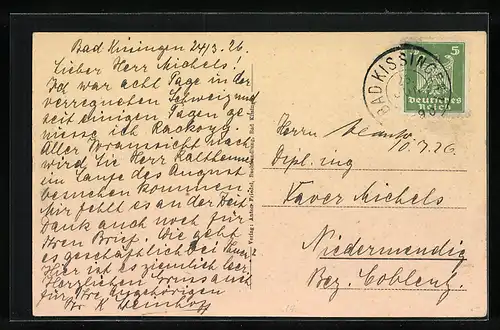 Bad Kissingen 24/3. 26.
Lieber Herr Michels!
Ich war acht Tage in der
verregneten Schweiz und
seit einigen Tagen ge-
niesse ich Rackozy.
Aller Voraussicht nach
wird Sie Herr Kaltheuner
im Laufe des August
besuchen kommen
Mir fehlt es an der Zeit
Dank auch noch für
Ihren Brief. Wie geht
es geschäftlich bei Ihnen
Hier ist es ziemlich leer
Herzlichen Gruss auch
für Ihre Angehörigen
Ihr K Weinhoff
Verlag: Anton
Bad
2
BAD KISSINGEN
5
Deutsches
Reich
Herrn
10.7.26.
Dipl. ing
Xaver Michels
Niedermendig
Bez. Coblenz.